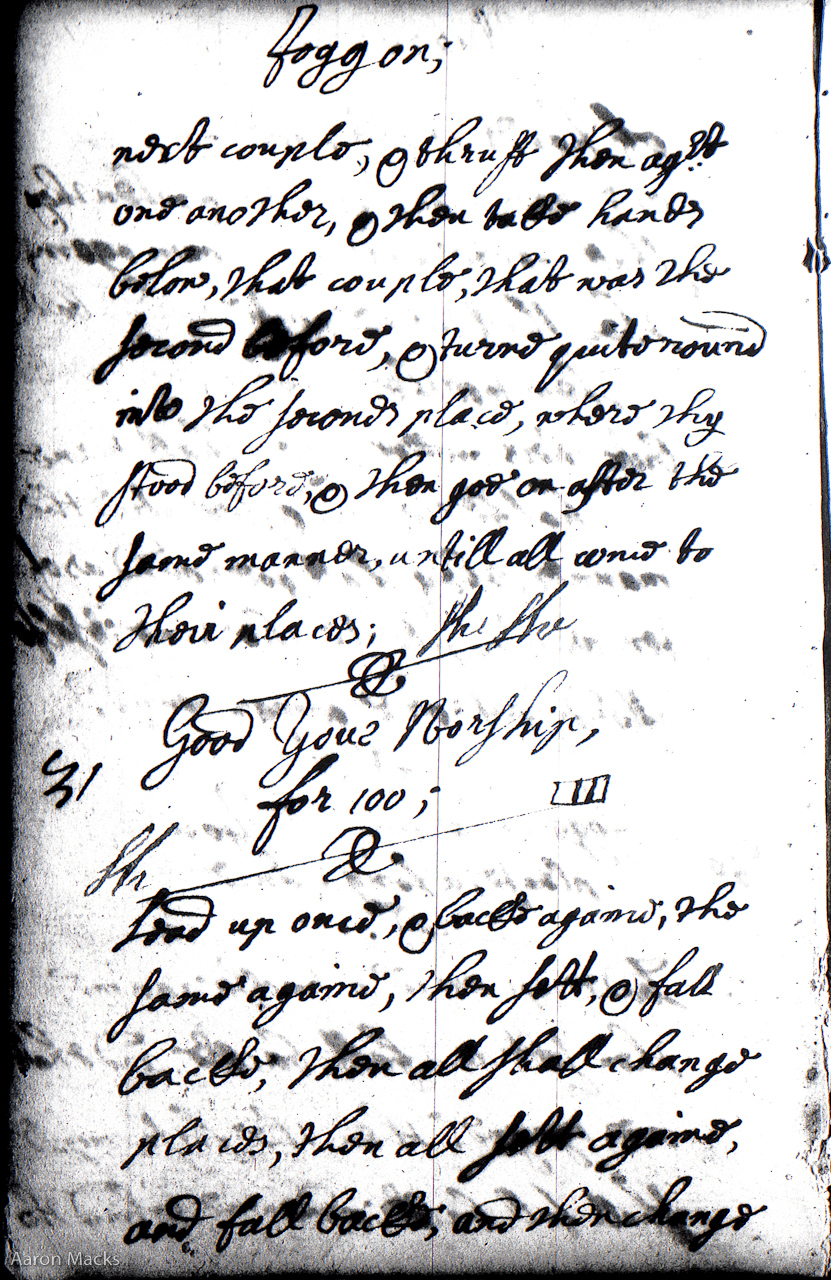 Jogg on;
next couple, & thrust then agst
one another, & then take hands
below, that couple, that was the
second before, & turne quite round
into the seconds place, where thy
stood before, & then goe on after the
same manner, untill all come to
their places; the the
Good Your Worship,
31
for 100;
the
Lead up once, & backe againe, the
same againe, then sett, & fall
backe, then all shall change
places, then all sett againe,
and fall backe, and then change
Aaron Macks